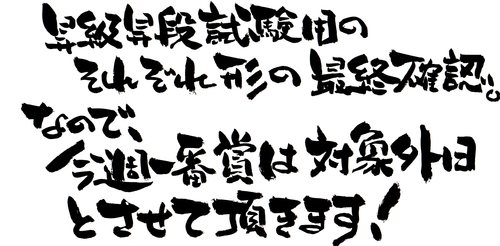 昇級昇段試験用の
それぞれ形の最終確認。
なので、
今週一番賞は対象外日
とさせて頂きます!